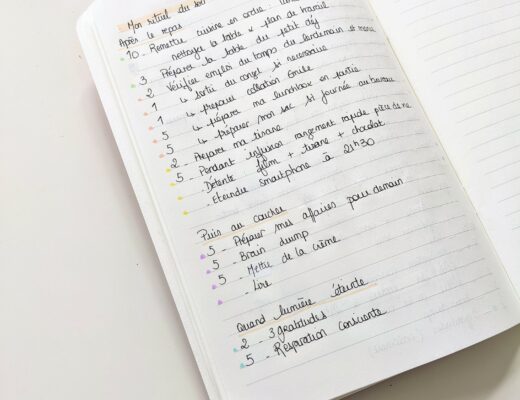 Mon rituel du soir
Après le repas
10 - Remettre cuisine en ordre
nettoyer la table + plan de travail
3 - Préparer la table du petit déj
2 - Vérifier emploi du temps du lendemain et menu
1 ↳ sortir du congel si nécessaire
1 ↳ préparer collation Emile
5 ↳ prépare ma lunchbox en partie
5 ↳ préparer mon sac si journée au bureau
2 - Préparer ma tisane
5 - Pendant infusion rangement rapide pièce de vie
- Détente film + tisane + chocolat
- Eteindre smartphone à 21h30
Puis au coucher
5 - Préparer mes affaires pour demain
5 - Brain dump
5 - Mettre de la crème
- Lire
Quand lumière éteinte
2 - 3 gratitudes
5 - Respiration consciente